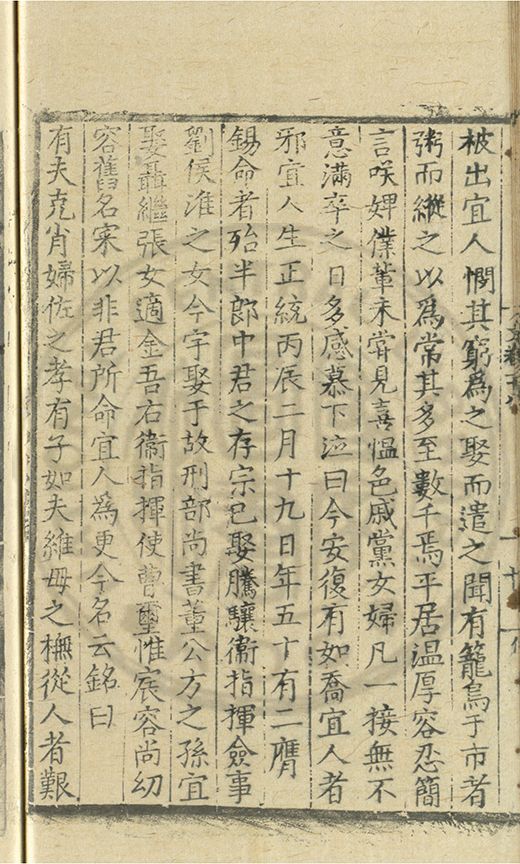 被出宜人憫其窮為之娶而遣之聞有籠鳥于市者
粥而縱之以為常其多至數千焉平居温厚容忍簡
言咲婢僕輩未嘗見喜愠色戚黨女婦凡一接無不
意滿卒之日多感慕下泣曰今安復有如喬宜人者
邪宜人生正統丙辰二月十九日年五十有二膺
錫命者殆半郎中君之存宗已娶騰驤衞指揮僉事
劉侯淮之女今宇娶于故刑部尚書董公方之孫宜
娶聶繼張女適金吾右衞指揮使曹璽惟宸容尚幼
容舊名宷以非君所命宜人為更今名云銘曰
有夫克肖婦佐之孝有子如夫維母之橅從人者艱